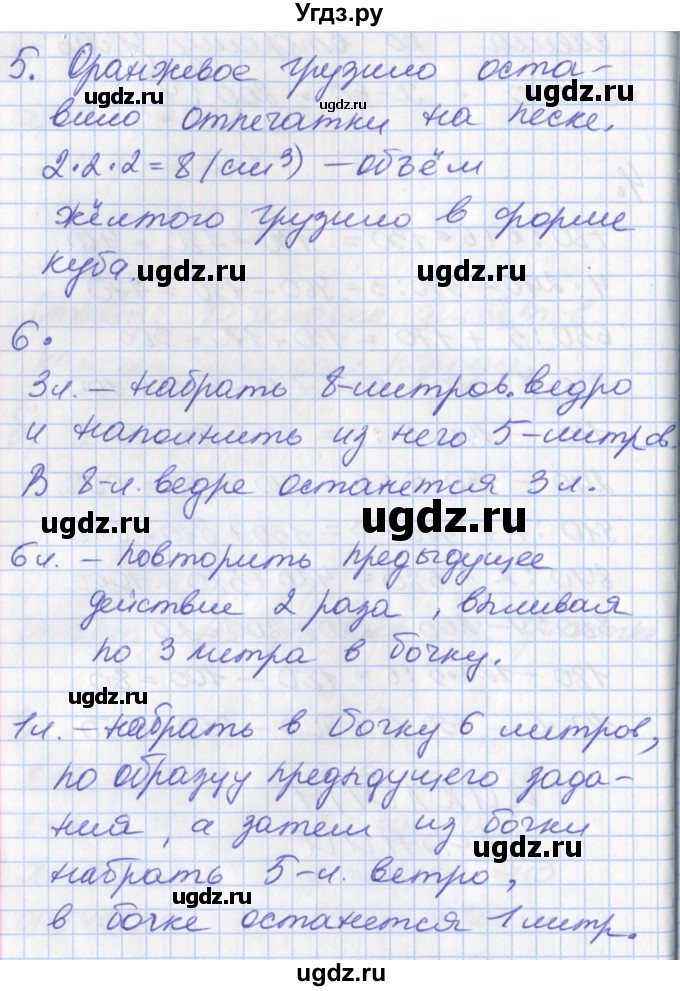 Угдз.ру
5. Оранжевое грузило оста-
ugdz.ru ugdz.ru ugdz.ru
вило отпечатки на песке.
2·2·2=8 (см³) – объём
жёлтого грузило в форме
куба.
ugdz.ru ugdz.ru
6.
3л. – набрать 8-литров. ведро
и наполнить из него 5-литров.
В 8-л. ведре останется 3л.
ugdz.ru ugdz.ru
6л. – повторить предыдущее
действие 2 раза, выливая
по 3 литра в бочку.
ugdz.ru
1л. – набрать в бочку 6 литров,
по образцу предыдущего зада-
ugdz.ru
ния, а затем из бочки
ugdz.ru
набрать 5-л. ветро,
ugdz.ru
в бочке останется 1 литр.
ugdz.ru ugdz.ru
ugdz.ru